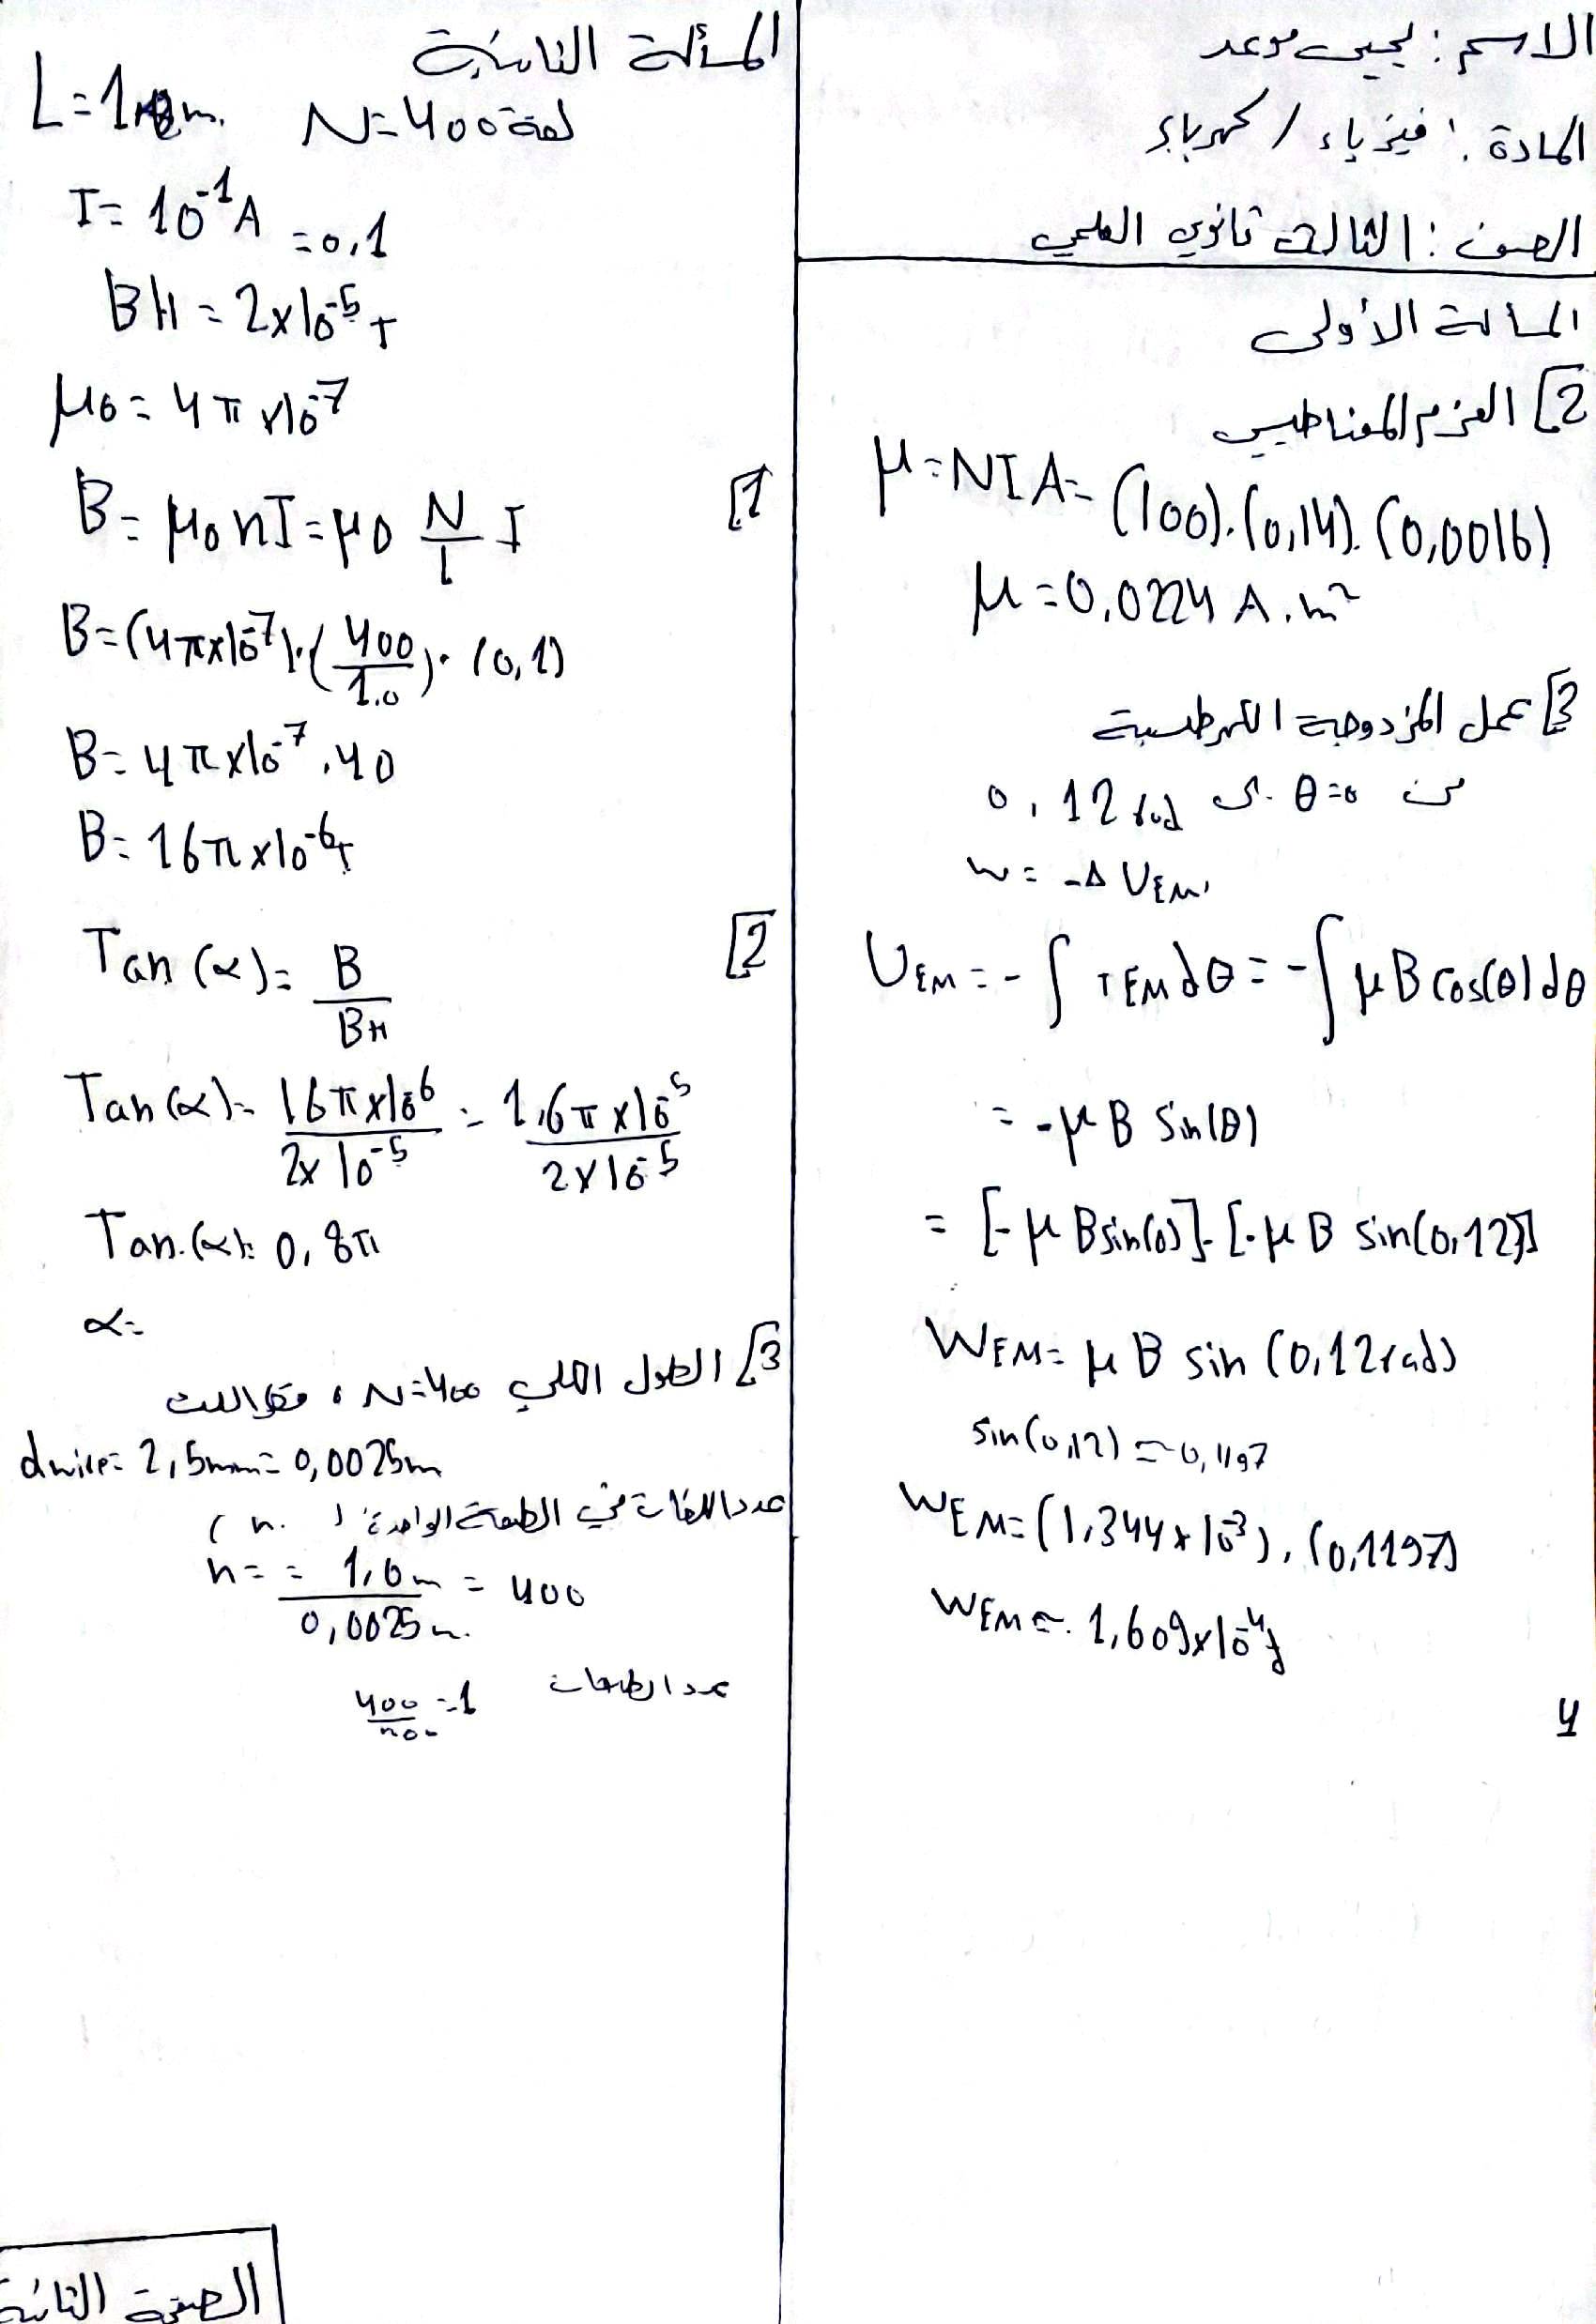 الاسم: يحيى موعد
المادة: فيزياء / كهرباء
الصف: الثالث ثانوي العلمي
المسألة الأولى
2] العزم المغناطيسي
μ = NIA = (100).(0,14).(0,0016)
μ = 0,0224 A.m²
3] عمل المزدوجة الكهرطيسية
من θ=0 الى 0,12 rad
W = -Δ UEM
UEM = - ∫ TEM dθ = - ∫ μ B cos(θ) dθ
= -μ B Sin(θ)
= [-μ B sin(0)] - [-μ B sin(0,12)]
WEM = μ B sin (0,12rad)
sin(0,12) ≈ 0,1197
WEM = (1,344×10⁻³).(0,1197)
WEM ≈ 1,609×10⁻⁴ J
4
المسألة الثانية
L = 1 m. N = 400 لفة
I = 10⁻¹ A = 0,1
BH = 2×10⁻⁵ T
μ0 = 4π×10⁻⁷
1]
B = μ0 nI = μ0 N/L I
B = (4π×10⁻⁷).(400/1.0).(0,1)
B = 4π×10⁻⁷ . 40
B = 16π×10⁻⁶ T
2]
Tan (α) = B/BH
Tan (α) = 16π×10⁻⁶/2×10⁻⁵ = 1,6π×10⁻⁵/2×10⁻⁵
Tan (α) = 0,8π
α =
3] الطول الكلي N=400 ,
dwire = 2,5mm = 0,0025m
عدد اللفات في الطبقة الواحدة ( n. )
n = = 1,0m/0,0025m = 400
عدد الطبقات 400/400 = 1
الصفحة الثانية